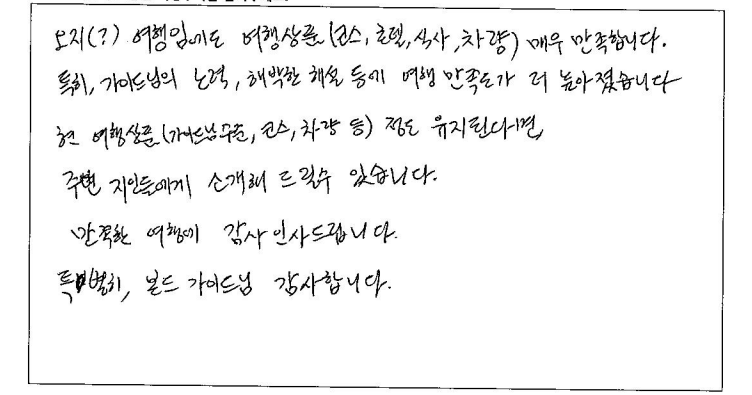 오지(?) 여행임에도 여행상품(코스, 호텔, 식사, 차량) 매우 만족합니다.
특히, 가이드님의 노력, 해박한 해설 등에 여행 만족도가 더 높아졌습니다
현 여행상품(가이드님수준, 코스, 차량 등) 정도 유지된다면,
주변 지인들에게 소개해 드릴수 있습니다.
만족한 여행에 감사인사드립니다.
특별히, 볼드 가이드님 감사합니다.